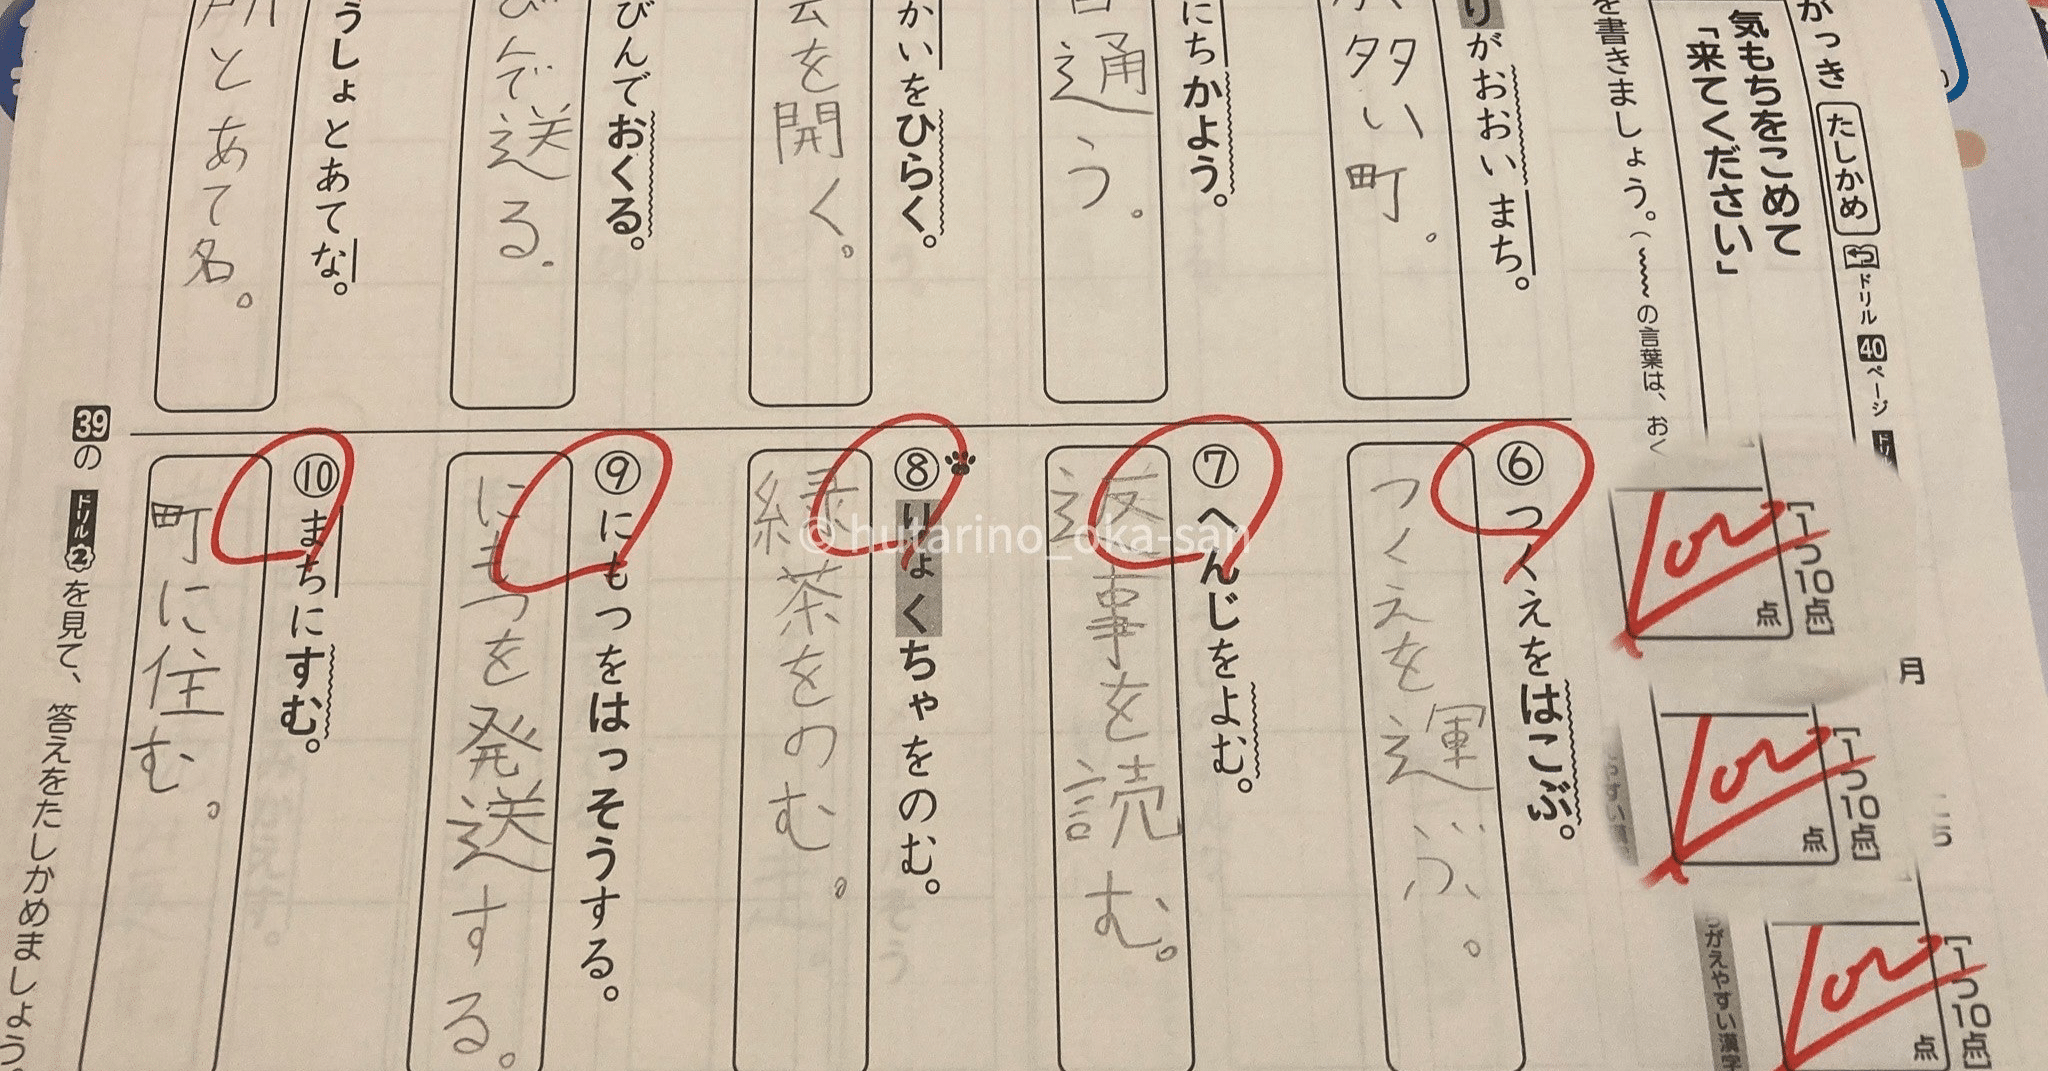 がっき
たしかめ
ドリル 40 ページ
気もちをこめて
「来てください」
を書きましょう。(〰〰の言葉は、おく
りがおおいまち。
多い町。
にちかよう。
通う。
かいをひらく。
会を開く。
びんでおくる。
びんで送る.
うしょとあてな。
所とあて名。
月
[1つ10点]
点
[1つ10点]
点
[1つ10点]
点
がえやすい漢字
⑥つくえをはこぶ。
つくえを運ぶ。
⑦へんじをよむ。
返事を読む。
⑧りょくちゃをのむ。
緑茶をのむ。
⑨にもつをはっそうする。
にもつを発送する。
⑩まちにすむ。
町に住む。
39の ドリル 2 を見て、答えをたしかめましょう
© hutarino_oka-san